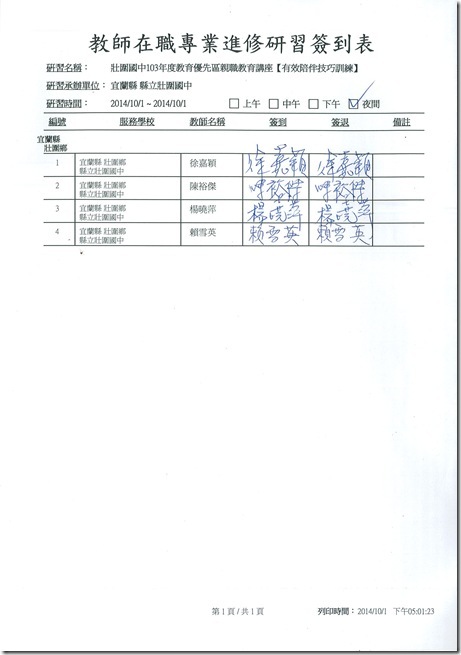 教師在職專業進修研習簽到表
研習名稱： 壯圍國中103年度教育優先區親職教育講座【有效陪伴技巧訓練】
研習承辦單位： 宜蘭縣 縣立壯圍國中
研習時間： 2014/10/1 ~ 2014/10/1 □ 上午 □ 中午 □ 下午 ☑ 夜間
編號 服務學校 教師名稱 簽到 簽退 備註
宜蘭縣
壯圍鄉
1 宜蘭縣 壯圍鄉 徐嘉穎 徐嘉穎 徐嘉穎
縣立壯圍國中
2 宜蘭縣 壯圍鄉 陳裕傑 陳裕傑 陳裕傑
縣立壯圍國中
3 宜蘭縣 壯圍鄉 楊曉萍 楊曉萍 楊曉萍
縣立壯圍國中
4 宜蘭縣 壯圍鄉 賴雪英 賴雪英 賴雪英
縣立壯圍國中
第 1 頁 / 共 1 頁 列印時間： 2014/10/1 下午05:01:23